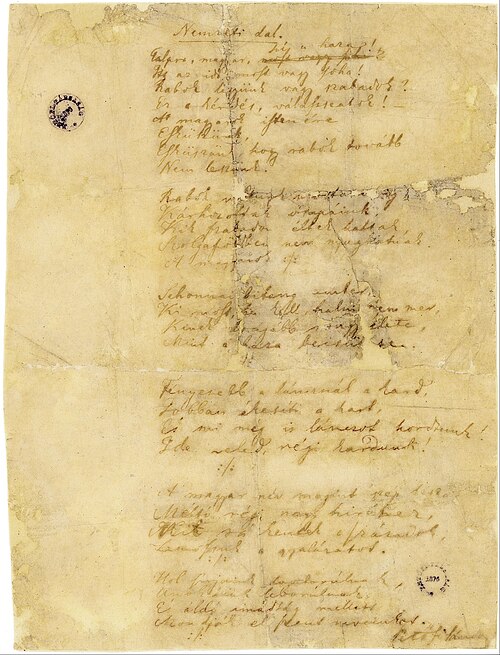 Nemzeti dal.
hí a haza!
Talpra, magyar,
Itt az idő, most vagy soha!
Rabok legyünk vagy szabadok?
Ez a kérdés, válasszatok! –
A magyarok istenére
Esküszünk,
Esküszünk, hogy rabok tovább
Nem leszünk!
Rabok voltunk mostanáig
Kárhozottak ősapáink,
Kik szabadon éltek haltak,
Szolgaföldben nem nyughatnak.
A magyarok
Sehonnai bitang ember,
Ki most, ha kell, halni nem mer,
Kinek drágább rongy élete,
Mint a haza becsülete.
Fényesebb a láncnál a kard,
Jobban ékesíti a kart,
És mi még is láncot hordtunk!
Ide veled, régi kardunk!
A magyar név megint szép lesz,
Méltó régi nagy híréhez,
Mit rá kentek a századok,
Lemossuk a gyalázatot.
Hol sírjaink domborulnak,
Unokáink leborulnak,
És áldó imádság mellett
Mondják el szent neveinket.
Petőfi Sándor
1876